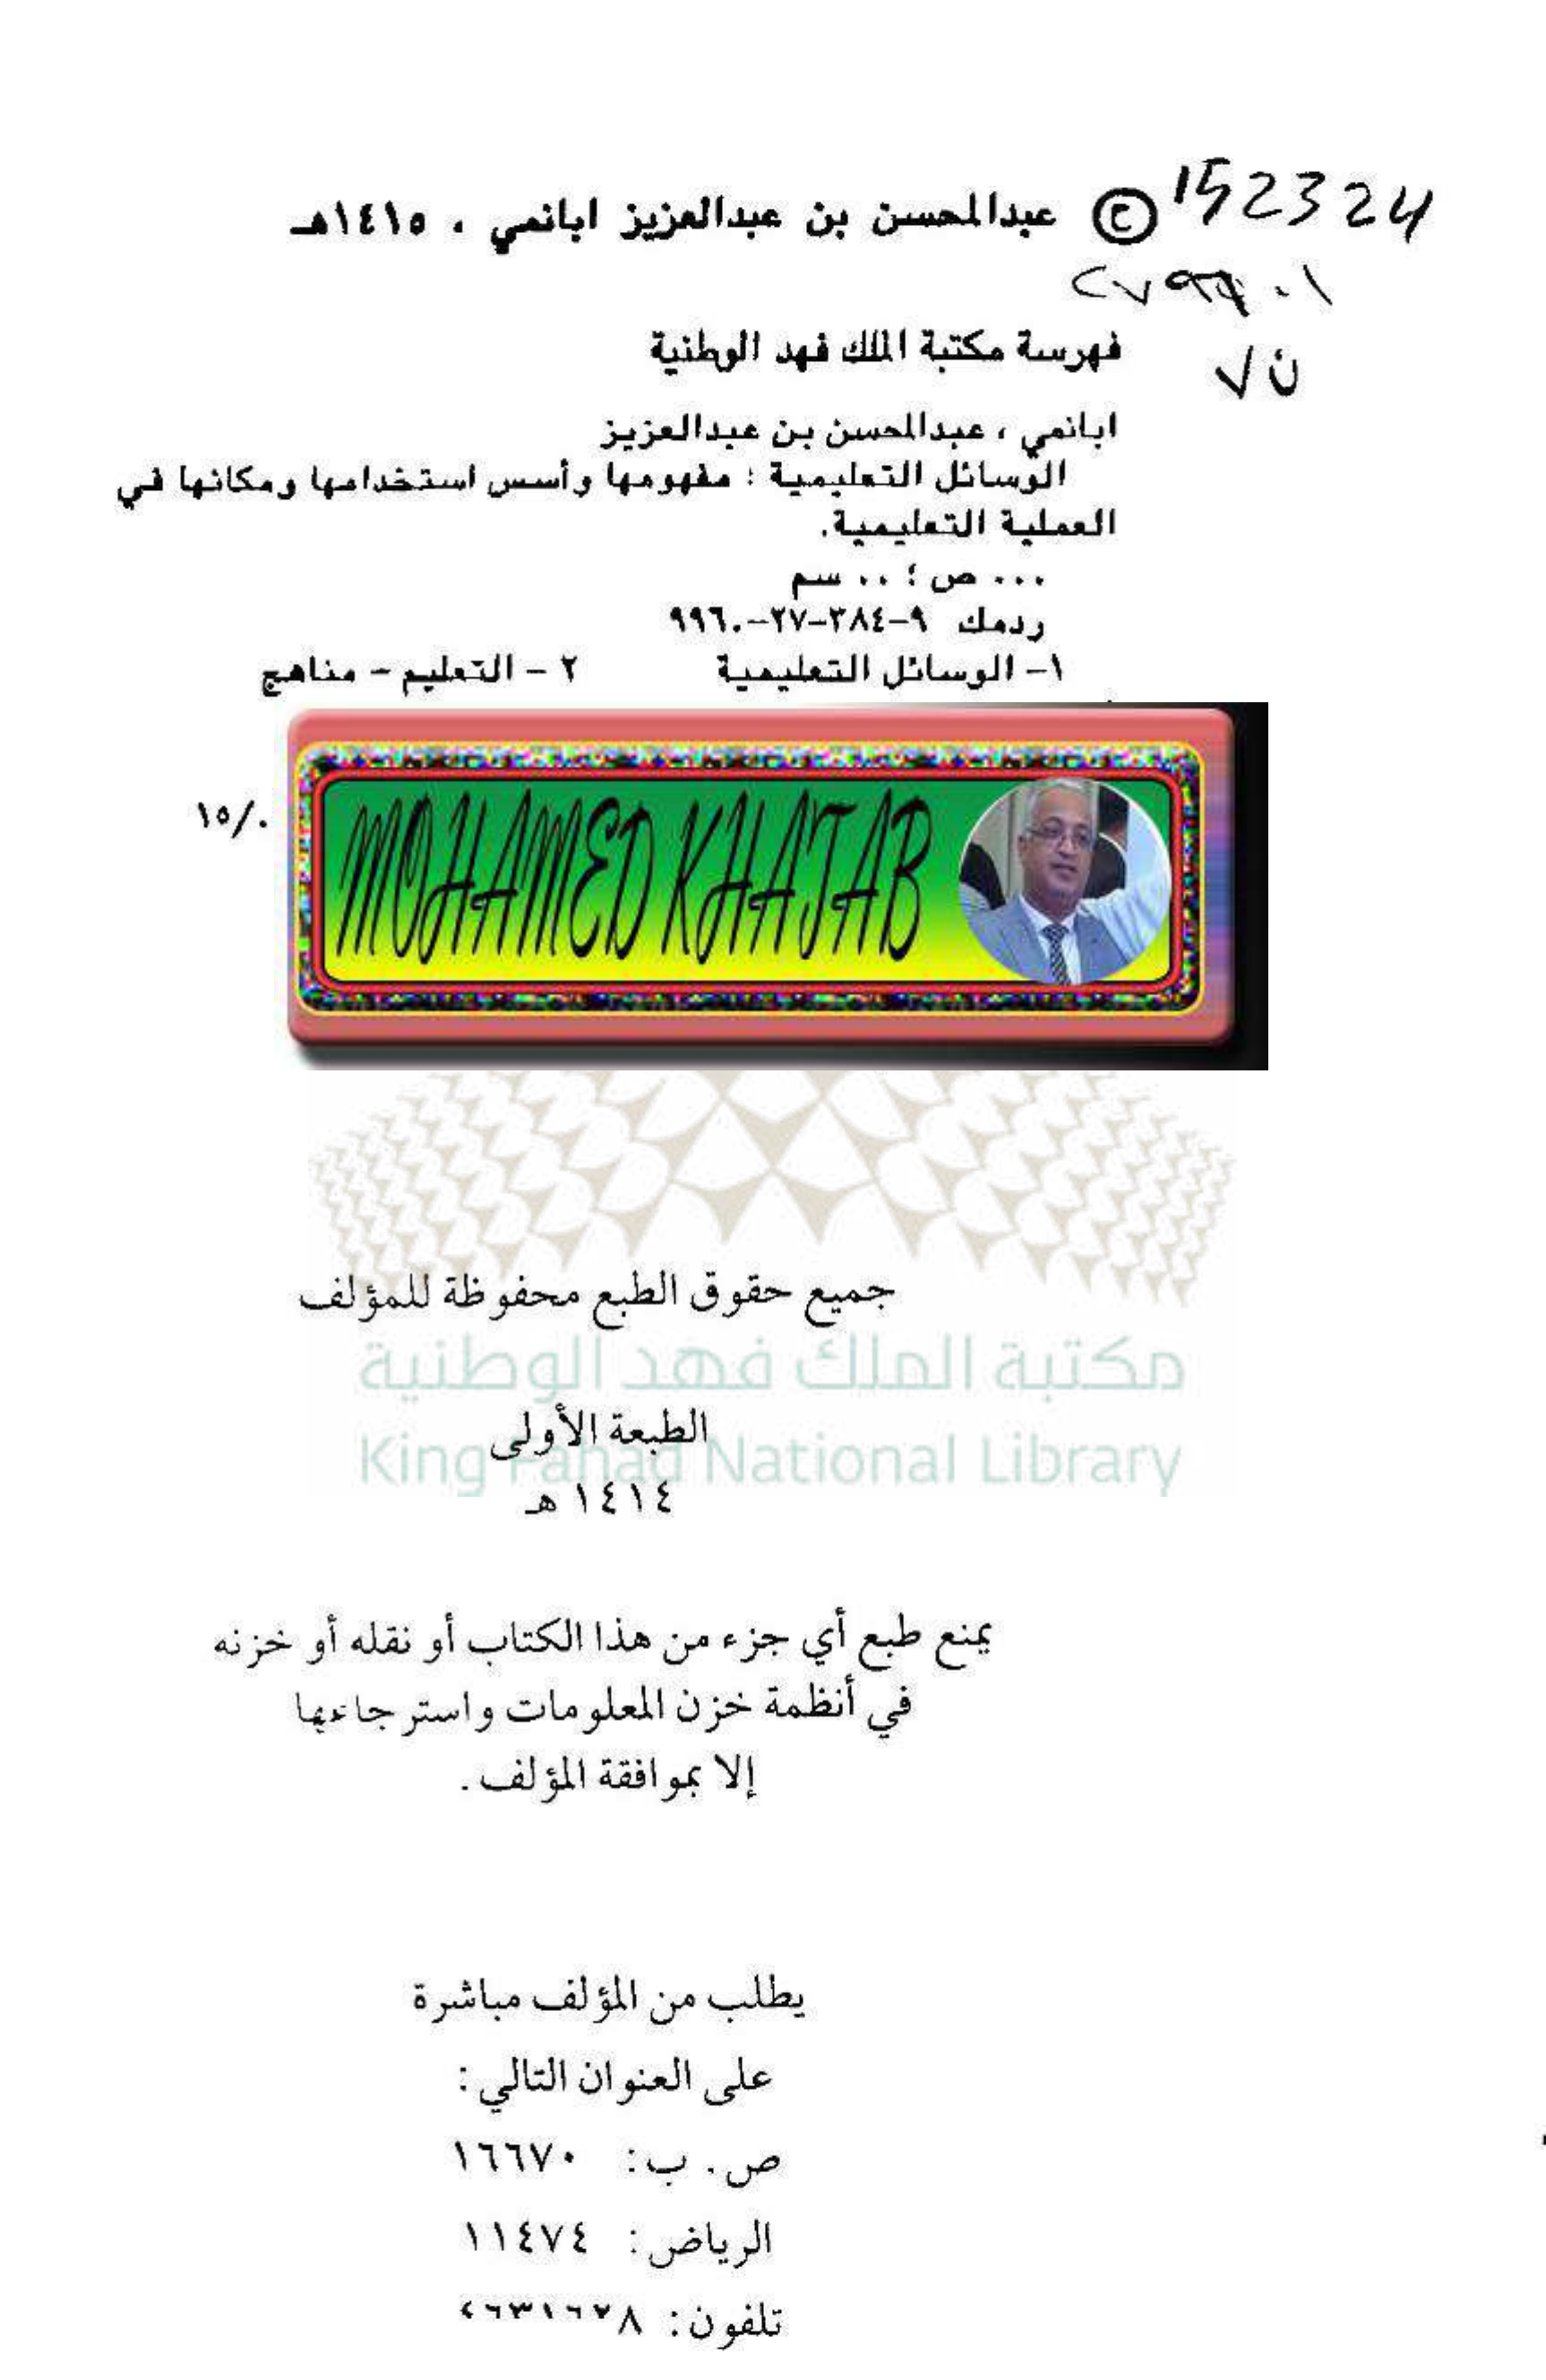 © عبدالمحسن بن عبدالعزيز ابانمي ، ١٤١٥هـ
152324
فهرسة مكتبة الملك فهد الوطنية
ن٧
ابانمي ، عبدالمحسن بن عبدالعزيز
الوسائل التعليمية : مفهومها وأسس استخدامها ومكانها في
العملية التعليمية.
٠٠٠ ص ؛ ٠٠ سم
ردمك ٩-٣٨٤-٢٧-٩٩٦٠
١- الوسائل التعليمية ٢ - التعليم - مناهج
١٥/٠
MOHAMED KHATAB
جميع حقوق الطبع محفوظة للمؤلف
مكتبة الملك فهد الوطنية
الطبعة الأولى
King Fahad National Library
١٤١٤ هـ
يمنع طبع أي جزء من هذا الكتاب أو نقله أو خزنه
في أنظمة خزن المعلومات واسترجاعها
إلا بموافقة المؤلف .
يطلب من المؤلف مباشرة
على العنوان التالي :
ص . ب : ١٦٦٧٠
الرياض : ١١٤٧٤
تلفون :